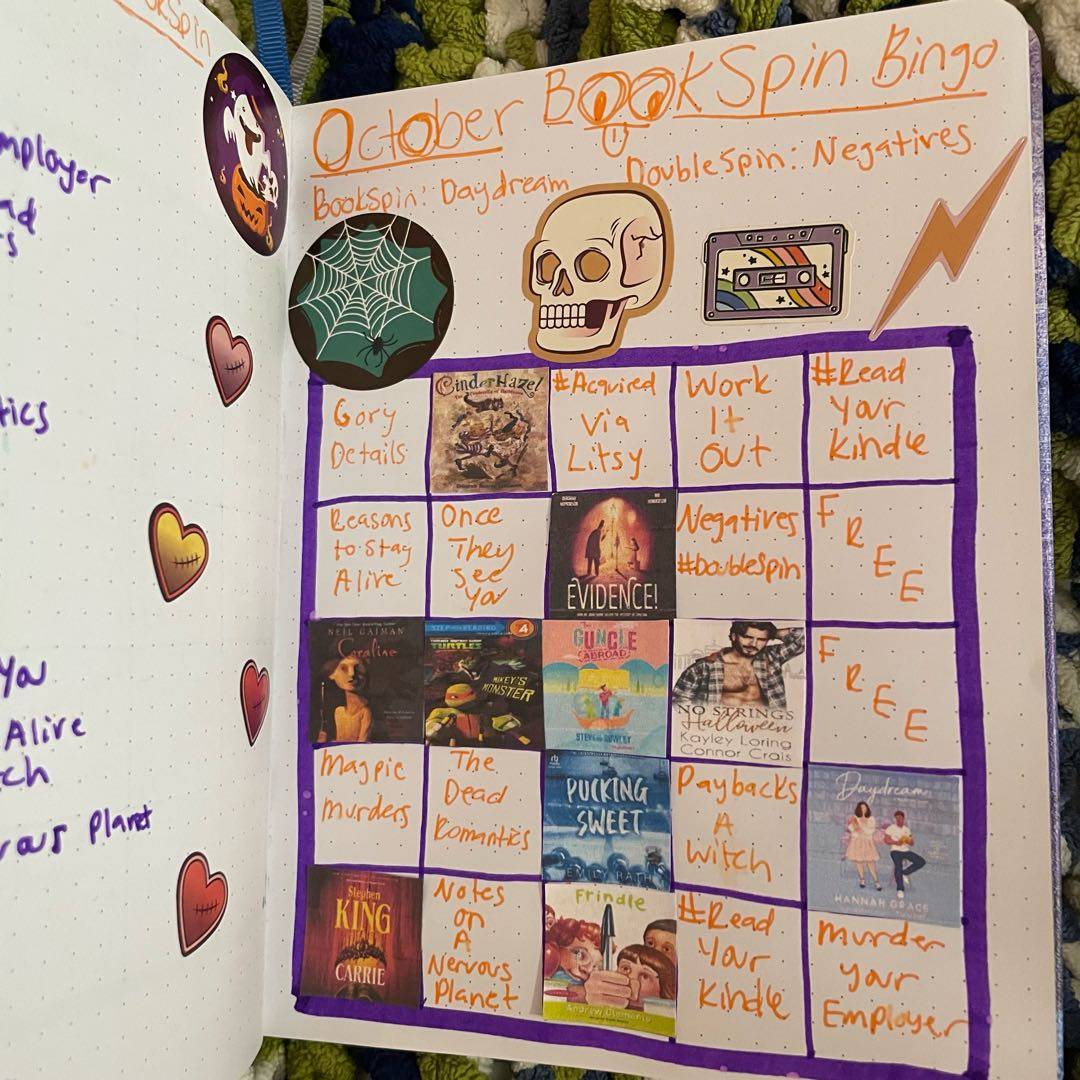 ookSpin
mployer
ad
s
tics
You
Alive
tch
rvous Planet
October BOOKSpin Bingo
BookSpin: Daydream DoubleSpin: Negatives
Gory
Details
CinderHazel
#Acquired
Via
Litsy
Work
It
Out
#Read
Your
Kindle
Reasons
to Stay
Alive
Once
They
See
You
EVIDENCE!
Negatives
#DoubleSpin
F
R
E
E
NEIL GAIMAN
Coraline
STEP INTO READING 4
TURTLES
MIKEY'S
MONSTER
The
GUNCLE
ABROAD
STEVEN ROWLEY
NO STRINGS
Halloween
Kayley Loring
Connor Crais
F
R
E
E
Magpie
Murders
The
Dead
Romantics
PUCKING
SWEET
EMILY RATH
Paybacks
A
Witch
Daydream
HANNAH GRACE
Stephen
KING
CARRIE
Notes
on
A
Nervous
Planet
Frindle
Andrew Clements
#Read
Your
Kindle
Murder
Your
Employer